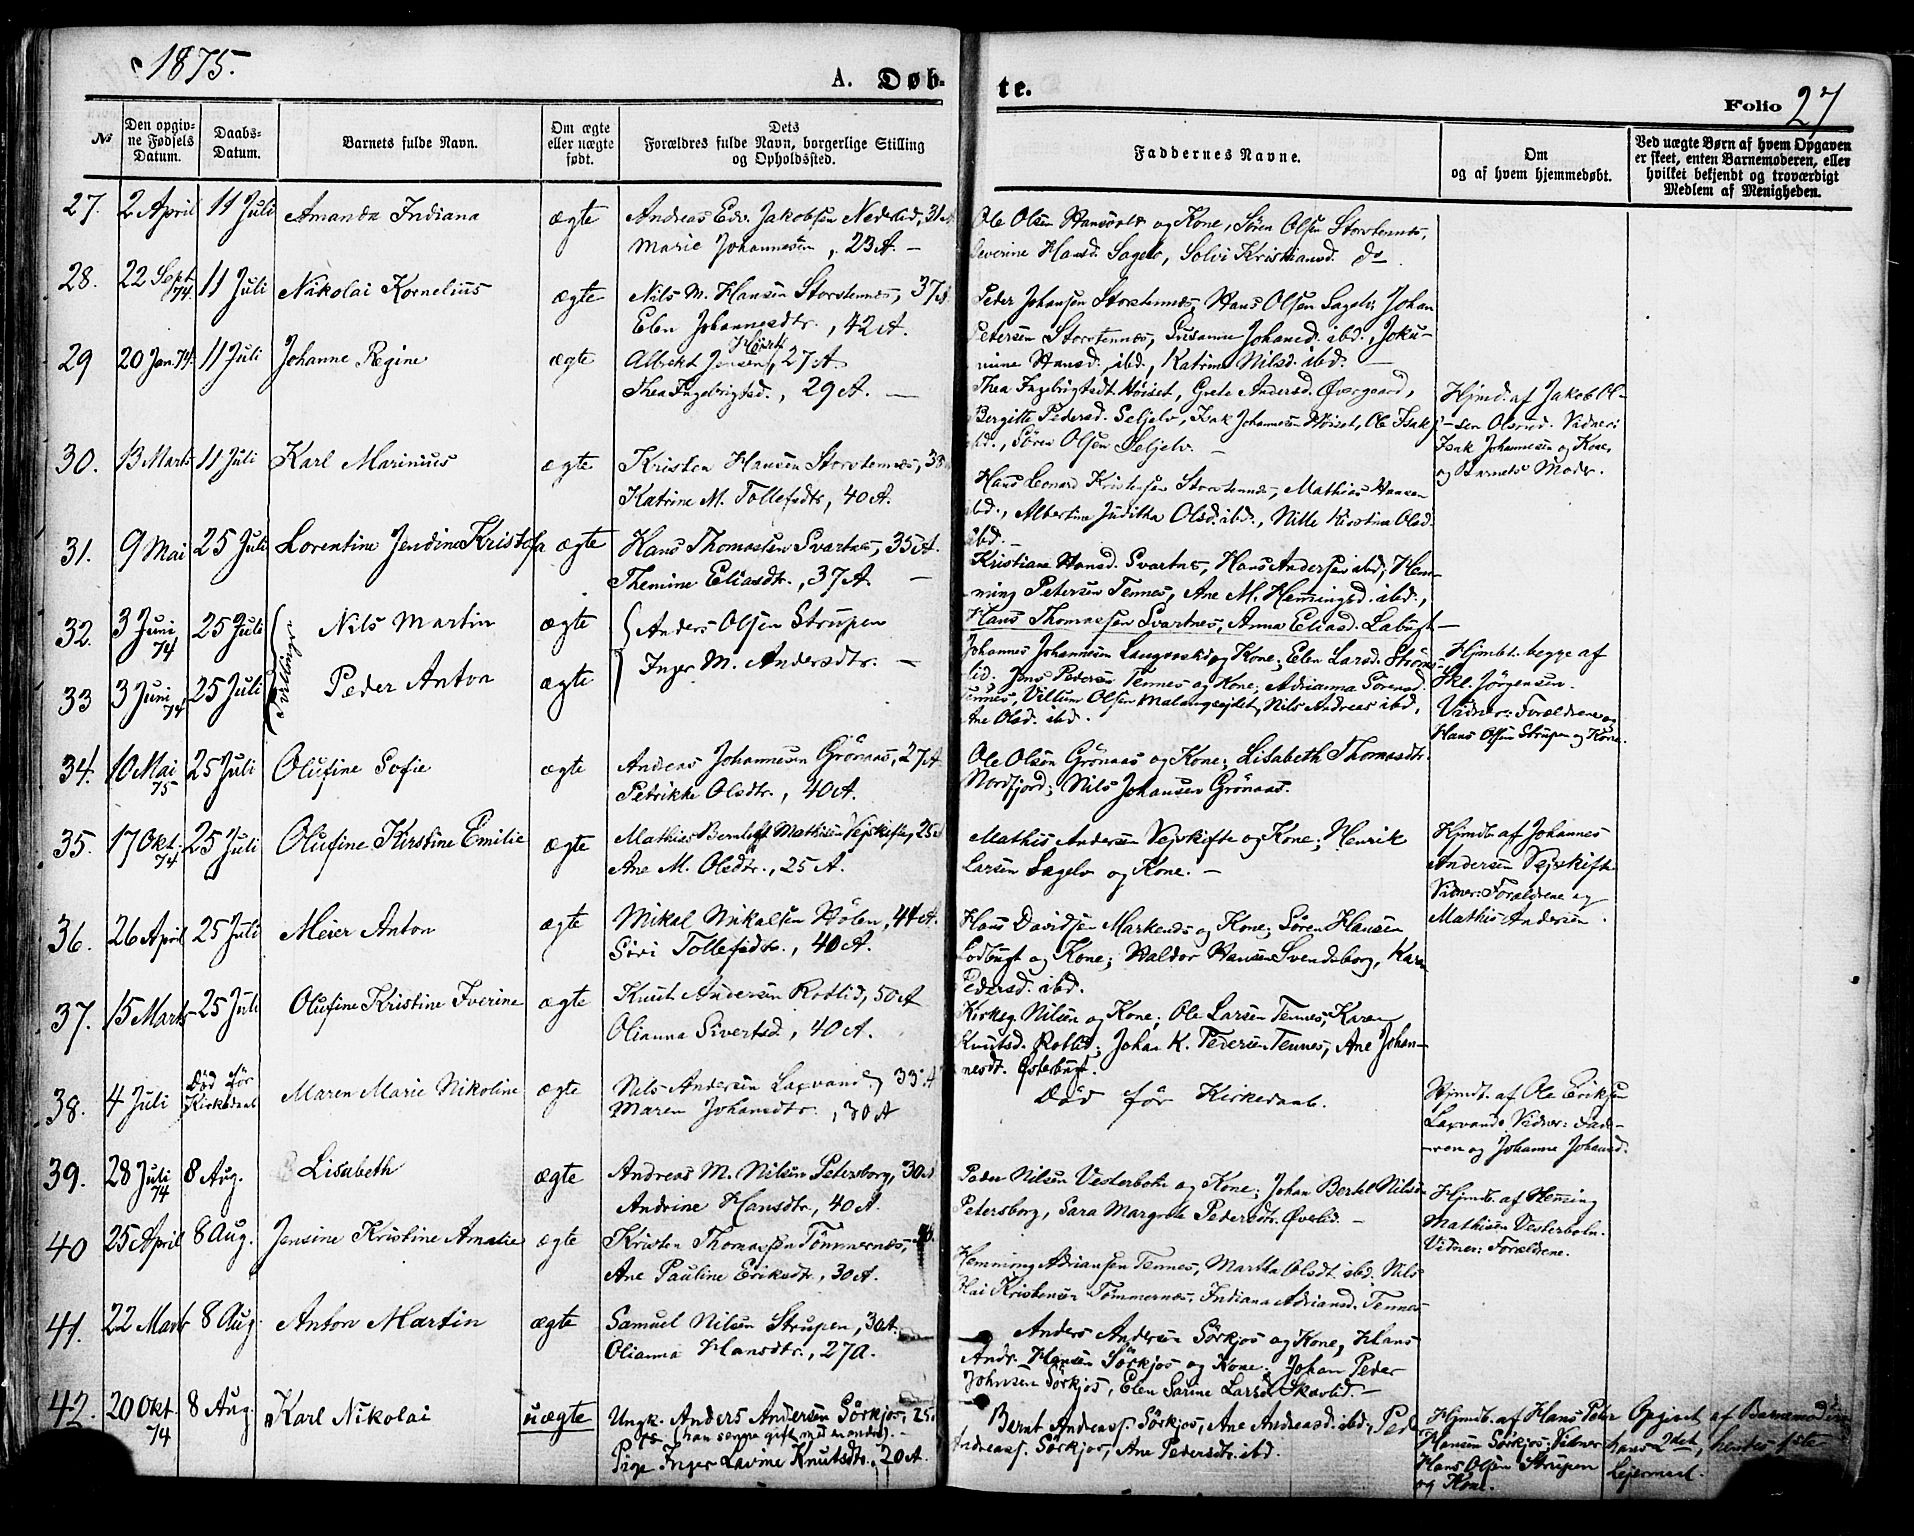 1875.
A. Døb-
te.
Folio 27
№
Den opgiv-
ne Fødsels
Datum.
Daabs-
Datum.
Barnets fulde Navn.
Om ægte
eller uægte
født.
Dets
Forældres fulde Navn, borgerlige Stilling
og Opholdssted.
Faddernes Navne.
Om
og af hvem hjemmedøbt.
Ved uægte Børn af hvem Opgaven
er skeet, enten Barnemoderen, eller
hvilket bekjendt og troværdigt
Medlem af Menigheden.
27. 2 April 11 Juli Amanda Indiana ægte Andreas Edv. Jakobsen Nederlid, 31 A
Marie Johannesen, 23 A. —
Ole Olsen Hansvold og Kone, Sören Olsen Storstennes,
Severine Hansd. Sagelv, Solvi Kristiansd. do
28. 22 Sept. 74 11 Juli Nikolai Kornelius ægte Nils M. Hansen Storstennes, 37 A
Elen Johannesdtr., 42 A.
Peder Johansen Storstennes, Hans Olsen Sagelv, Johan
Petersen Storstennes, Susanne Johansd. ibd., Joku-
mine Hansd. ibd., Katrine Nilsd. ibd. —
29 20 Jan. 74. 11 Juli Johanne Regine ægte Albrekt Jensen Höiset, 27 A.
Thea Ingebrigtsd., 29 A. —
Thea Ingebrigtsdt Höiset, Grete Andersd. Øvergaard,
Bergitte Pedersd. Seljelv, Isak Johannesen Höiset, Ole Isaks
ibd., Sören Olsen Seljelv. —
Hjmd. af Jakob Ol-
sen Olsrud. Vidner:
Isak Johannesen og Kone,
og Barnets Moder.
30. 13 Marts 11 Juli Karl Marinius ægte Kristen Hansen Storstennes, 38
Katrine M. Tollefsdtr, 40 A.
Hans Leonard Kristensen Storstennes, Mathias Hansen
ibd., Albertine Juditha Olsd. ibd., Nille Kirstina Olsd.
ibd. —
31. 9 Mai 25 Juli Lorentine Jendine Kristofa ægte Hans Thomassen Svartnes, 35 A.
Themine Eliasdtr., 37 A. —
Kristiane Hansd. Svartnes, Hans Andersen ibd., Hem-
ming Petersen Tennes, Ane M. Hemmingsd. ibd.,
Hans Thomassen Svartnes, Anna Eliasd. Labugt —
32. 3 Juni 74 25 Juli Nils Martin ægte Anders Olsen Strupen
33 3 Juni 74 25 Juli Peder Anton ægte Inger M. Andersdtr. —
Johannes Johannesen og Kone, Elen Larsd. Ströms-
lid, Jens Pedersen Tennes og Kone, Adrianna Sörensd.
Tennes, Villum Olsen Malangseidet, Nils Andreas ibd,
Ane Olsd. ibd.
Hjmbt. begge af
Skl. Jørgensen.
Vidner: Forældrene og
Hans Olsen Strupen og Kone.
34. 10 Mai 75 25 Juli Olufine Sofie ægte Andreas Johannesen Grönaas, 27 A
Petrikke Olsdtr., 40 A.
Ole Olsen Grönaas og Kone; Lisabeth Thomasdtr.
Nordfjord; Nils Johansen Grönaas.
35. 17 Okt. 74 25 Juli Olufine Kirstine Emilie ægte Mathias Bernhoft Mathisen Vejskifte, 25 A
Ane M. Olsdtr., 25 A.
Mathis Andersen Vejskifte og Kone; Henrik
Larsen Sagelv og Kone. —
Hjmdt. af Johannes
Andersen Vejskifte
Vidner: Forældrene og
Mathis Andersen.
36. 26 April 25 Juli Meier Anton ægte Mikal Mikalsen Hölen, 44 A.
Siri Tollefsdtr., 40 A.
Hans Davidsen Markenes og Kone; Sören Hansen
Lodbugt og Kone; Haldor Hansen Svendsborg, Karen
Pedersd. ibd.
37. 15 Marts 25 Juli Olufine Kristine Iverine ægte Knut Andersen Rodlid, 50 A
Olianna Sivertsd., 40 A.
Kirkeg. Nilsen og Kone; Ole Larsen Tennes, Karen
Knutsd. Rodlid; Johan K. Pedersen Tennes, Ane Johan-
nesdt. Østerbugt.
38. 4 Juli Död för Kirkedaab Maren Marie Nikoline ægte Nils Andersen Laxvand, 33 A
Maren Johansdtr., 30 A
Död för Kirkedaab.
Hjmdt. af Ole Eriksen
Laxvand. Vidner: Fade-
ren og Johanne Johansd.
39. 28 Juli 74 8 Aug. Lisabeth ægte Andreas M. Nilsen Petersborg, 30 A
Andrine Hansdtr., 40 A.
Peder Nilsen Vesterbotn og Kone; Johan Bertel Nilsen
Petersborg, Sara Margrete Pedersdtr. Øvelid. —
Hjmdt. af Heming
Mathisen Vesterbotn.
Vidner: Forældrene.
40 25 April 8 Aug. Jensine Kristine Amalie ægte Kristen Thomassen Tömmernes,
Ane Pauline Eriksdtr., 30 A.
Hemming Adriansen Tennes, Martha Olsdt. ibd. Nils
Hai Kristensen Tömmernes, Indiana Adriansd. Tennes
41. 22 Marts 8 Aug. Anton Martin ægte Samuel Nilsen Strupen, 30 A.
Olianna Hansdtr., 27 A.
Anders Andersen Sörkjos og Kone, Hans
Andr. Hansen Sörkjos og Kone; Johan Peder
Johnsen Sörkjos, Elen Sarine Larsd. Skavlid. —
42. 20 Okt. 74 8 Aug. Karl Nikolai uægte Ungk. Anders Andersen Sörkjos, 25 A
(han senere gift med en anden). —
Pige Inger Lavine Knutsdtr., 20 A.
Bernt Andreass. Sörkjos, Ane Andreasd. ibd., Ped
Andreass. Sörkjos, Ane Pedersdtr. ibd.
Hjmdt. af Hans Peter
Hansen Sörkjos; Vidner
Hans Olsen Strupen
og Kone.
Opgivet af Barnemoderen
hans 2det, hendes 1ste
Lejermaal.